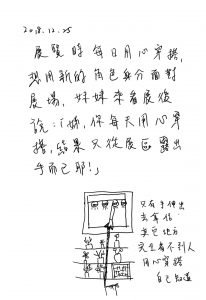 2018.12.25
展覽時每日用心穿搭,
想用新的角色與分面對
展場,妹妹來看展後
說:「姊,你每天用心穿
搭,結果只從展區露出
手而已耶!」
只有手伸出
去寄信
其它地方
完全看不到人
用心穿搭
自己知道